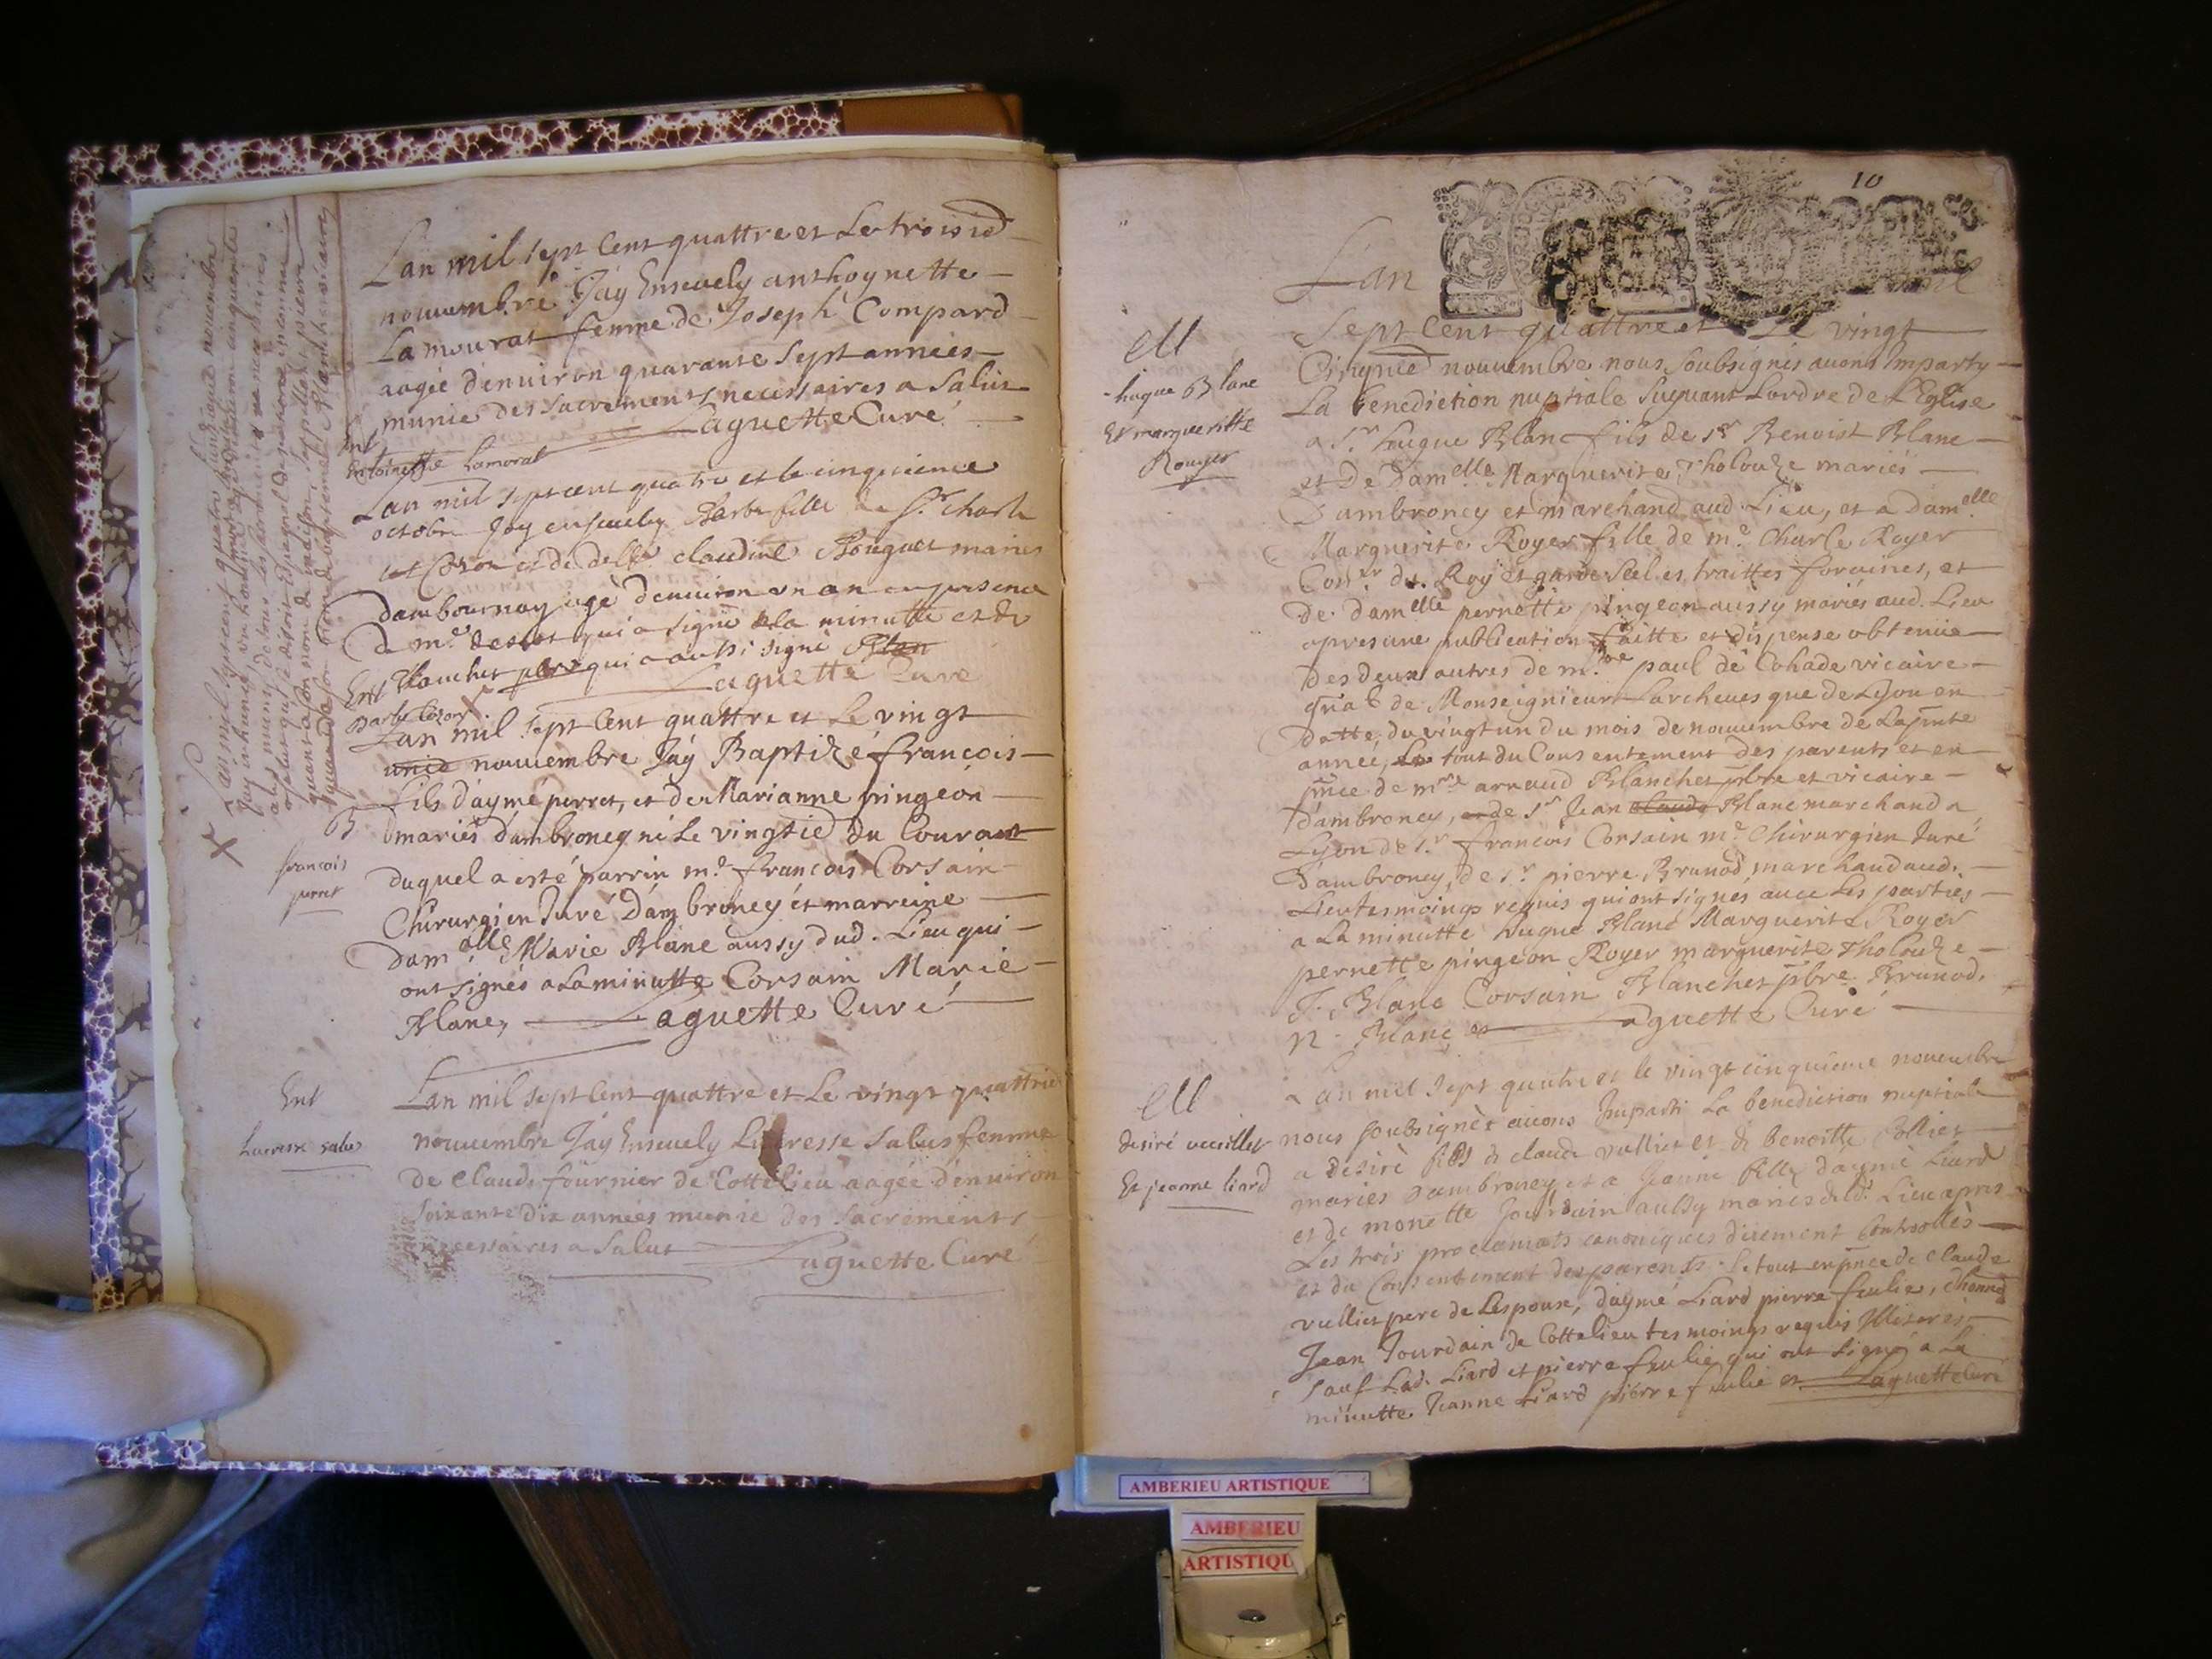 Lan mil sept Cent quattre et Le troisie
nouuembre Jay Enseuely anthoynette
Lamourat femme de Joseph Compard
aagée denuiron quarante sept années
munie des sacrements necessaires a salut
Laguette Curé
Ent
Antoinette Lamorat
Lan mil sept cent quatre et le cinquieme
octobre Jay enseuely Barbe fille de Sr. charle
Cozon et de delle claudine Bouguet maries
dambournay agé denuiron vn an en presence
de me. qui a signé a la minutte et de
blanchet qui a aussi signé
Laguette Curé
Ent
Barbe Cozon
Lan mil sept Cent quattre et Le vingt
unie nouuembre Jay Baptizé francois
fils d'aymé perret, et de Marianne pingeon
mariés dambroney né Le vingtie du Courant
duquel a esté parrin me. francois Corsain
Chirurgien Juré Dambroney et marreine
damelle Marie Blanc aussy dud. Lieu qui
ont signés a La minutte Corsain Marie
Blanc, Laguette Curé
B
francois
perret
Ent
Lucresse salus
Lan mil sept Cent quattre et Le vingt quattrie
nouuembre Jay Enseuely Lucresse Salus femme
de Claude fournier de Cottelieu aagée denuiron
soixante dix années munie des sacrements
necessaires a Salut Laguette Curé
X Lan mil sept cent quatre nouembre
Jay inhumé vn homme cinquante
ans muny de tous les sacrements necessaires
a salut inconnu
quant a son nom de maison, pierre
quand a son nom de bapteme Blanchet vicaire
10
Lan mil
Sept Cent quattre et Le vingt
Cinquie nouuembre nous soubsignés auons Imparty
La benediction nuptiale suyuant Lordre de L'Eglise
a Sr. hugue Blanc fils de sr Benoist Blanc
et de Damelle Marguerite Tholouze mariés
Dambroney et marchand aud Lieu, et a damelle
Marguerite Royer fille de me. Charle Royer
Coner du Roy et garde Séel es traittes foraines, et
de damelle pernette pingeon aussy mariés aud. Lieu
apres une publication faitte et dispense obtenüe
des deux autres de mre. paul de Cohade vicaire
gnal de Monseignieur Larcheuesque de Lyon en
datte du vingt un du mois de nouuembre de La pnte
année, Le tout du Consentement des parents et en
pnce de mre arnaud Blanchet pbre et vicaire
dambroney, de sr Jean claude Blanc marchand a
Lyon de Sr. francois Corsain me. Chirurgien Juré
Dambroney, de sr. pierre Brunod, marchand aud.
Lieu tesmoings requis qui ont signés auec Les parties
a La minutte hugue Blanc Marguerite Royer
pernette pingeon Royer marguerite Tholouze
J. Blanc Corsain Blanchet pbre Brunod,
n. Blanc et Laguette Curé
M
hugue Blanc
Et margueritte
Rouyer
M
desiré vuillier
Et jeanne liard
Lan mil sept quatre et le vingt cinquieme nouembre
nous soubsignés auons Imparti La benediction nuptiale
a desiré fils de claude vullier et de benoitte Collier
mariés dambroney et a Jeanne fille daymé Liard
et de monette Jourdain aussy mariés dud. Lieu apres
Les trois proclamats canoniques düement Controllés
et du Consentement des parents. Le tout en pnce de claude
vullier pere de Lespoux, daymé Liard pierre feulie, et
Jean Jourdain de Cottelieu tesmoings requis Illiterés
sauf Lad. Liard et pierre feulie qui ont signé a La
minutte Jeanne Liard pierre feulie et Laguette Curé
AMBERIEU ARTISTIQUE
AMBERIEU
ARTISTIQU